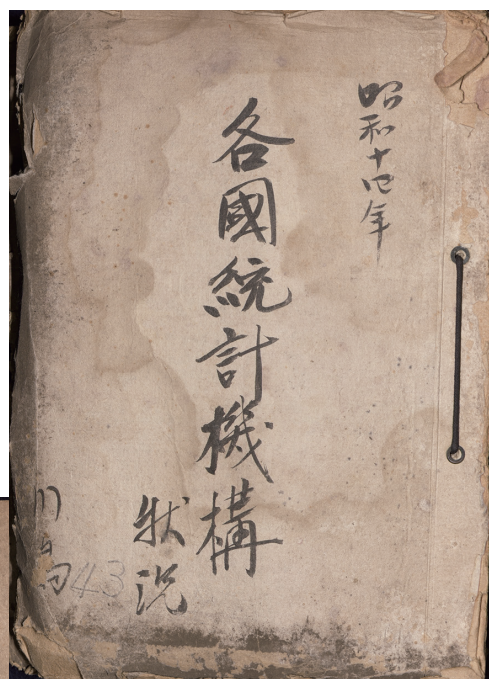 昭和十四年
各國統計機構
狀況
43